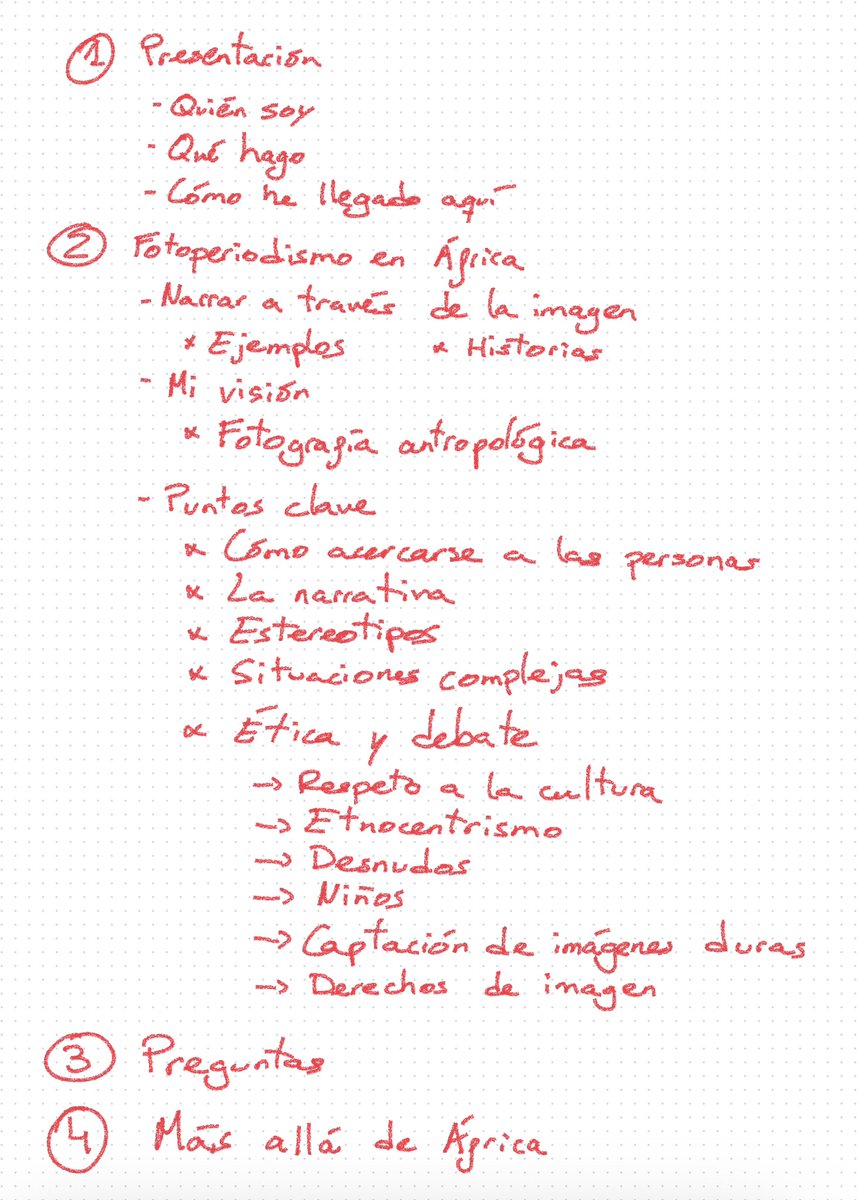 ① Presentación
- Quién soy
- Qué hago
- Cómo he llegado aquí
② Fotoperiodismo en África
- Narrar a través de la imagen
* Ejemplos * Historias
- Mi visión
* Fotografía antropológica
- Puntos clave
* Cómo acercarse a las personas
* La narrativa
* Estereotipos
* Situaciones complejas
* Ética y debate
→ Respeto a la cultura
→ Etnocentrismo
→ Desnudos
→ Niños
→ Captación de imágenes duras
→ Derechos de imagen
③ Preguntas
④ Más allá de África